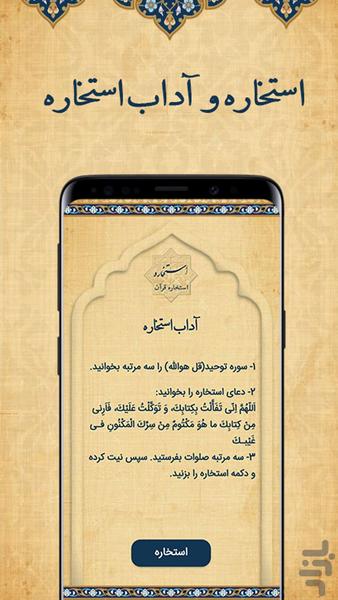 استخاره و آداب استخاره
استخاره
استخاره قرآن
آداب استخاره
۱- سوره توحید(قل هوالله) را سه مرتبه بخوانید.
۲- دعای استخاره را بخوانید:
اَللّهُمَّ اِنّی تَفَأَّلْتُ بِکِتابِکَ، وَ تَوَکَّلْتُ عَلَیْکَ، فَاَرِنی
مِنْ کِتابِکَ ما هُوَ مَکْتُومٌ مِنْ سِرِّکَ الْمَکْنُونِ فی
غَیْبِکَ
۳- سه مرتبه صلوات بفرستید. سپس نیت کرده
و دکمه استخاره را بزنید.
استخاره
بازار